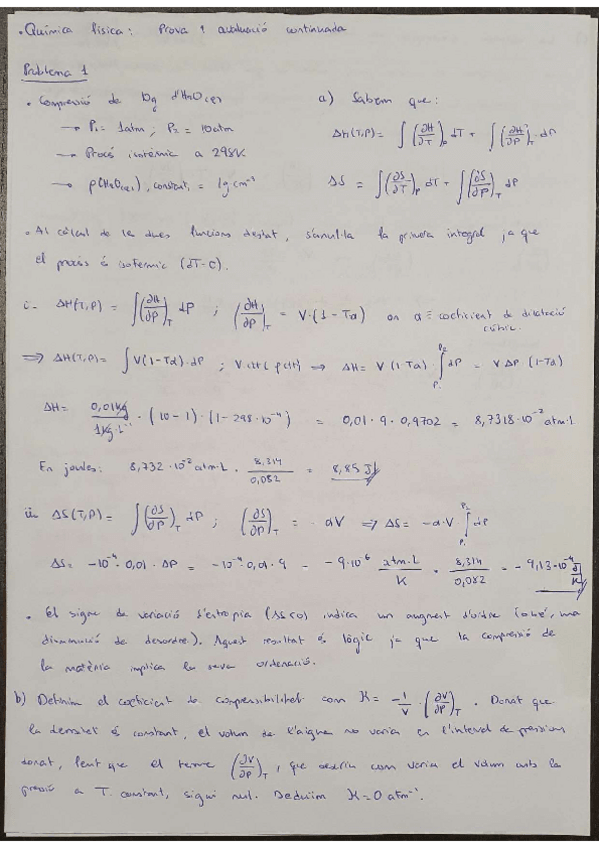 • Química física: Prova 1 avaluació continuada
Problema 1
• Compressió de 10g d'H₂O(l)
→ P₁ = 1atm ; P₂ = 10atm
→ Procés isotèrmic a 298K
→ ρ(H₂O(l)), constant, = 1g cm⁻³
a) Sabem que:
ΔH(T,P) = ∫(∂H/∂T)_P dT + ∫(∂H/∂P)_T dP
ΔS = ∫(∂S/∂T)_P dT + ∫(∂S/∂P)_T dP
• Al càlcul de les dues funcions d'estat, s'anul·la la primera integral ja que
el procés és isotèrmic (dT=0).
i. ΔH(T,P) = ∫(∂H/∂P)_T dP ; (∂H/∂P)_T = V·(1-Tα) on α ≡ coeficient de dilatació
cúbic.
⇒ ΔH(T,P) = ∫V(1-Tα)·dP ; V ctt (ρ ctt) ⇒ ΔH = V (1-Tα) ∫_P₁^P₂ dP = V ΔP (1-Tα)
ΔH = 0,01kg / 1kg·L⁻¹ · (10-1)·(1-298·10⁻⁴) = 0,01·9·0,9702 = 8,7318·10⁻² atm·L
En joules: 8,732·10⁻² atm·L · 8,314/0,082 = 8,85 J
ii. ΔS(T,P) = ∫(∂S/∂P)_T dP ; (∂S/∂P)_T = -αV ⇒ ΔS = -α·V·∫_P₁^P₂ dP
ΔS = -10⁻⁴·0,01·ΔP = -10⁻⁴·0,01·9 = -9·10⁻⁶ atm·L/K · 8,314/0,082 = -9,13·10⁻⁴ J/K
• El signe de variació d'entropia (ΔS<0) indica un augment d'ordre (o bé, una
disminució de desordre). Aquest resultat és lògic ja que la compressió de
la matèria implica la seva ordenació.
b) Definim el coeficient de compressibilitat com K = -1/V · (∂V/∂P)_T . Donat que
la densitat és constant, el volum de l'aigua no varia en l'interval de pressions
donat, fent que el terme (∂V/∂P)_T, que descriu com varia el volum amb la
pressió a T constant, sigui nul. Deduïm K=0 atm⁻¹.